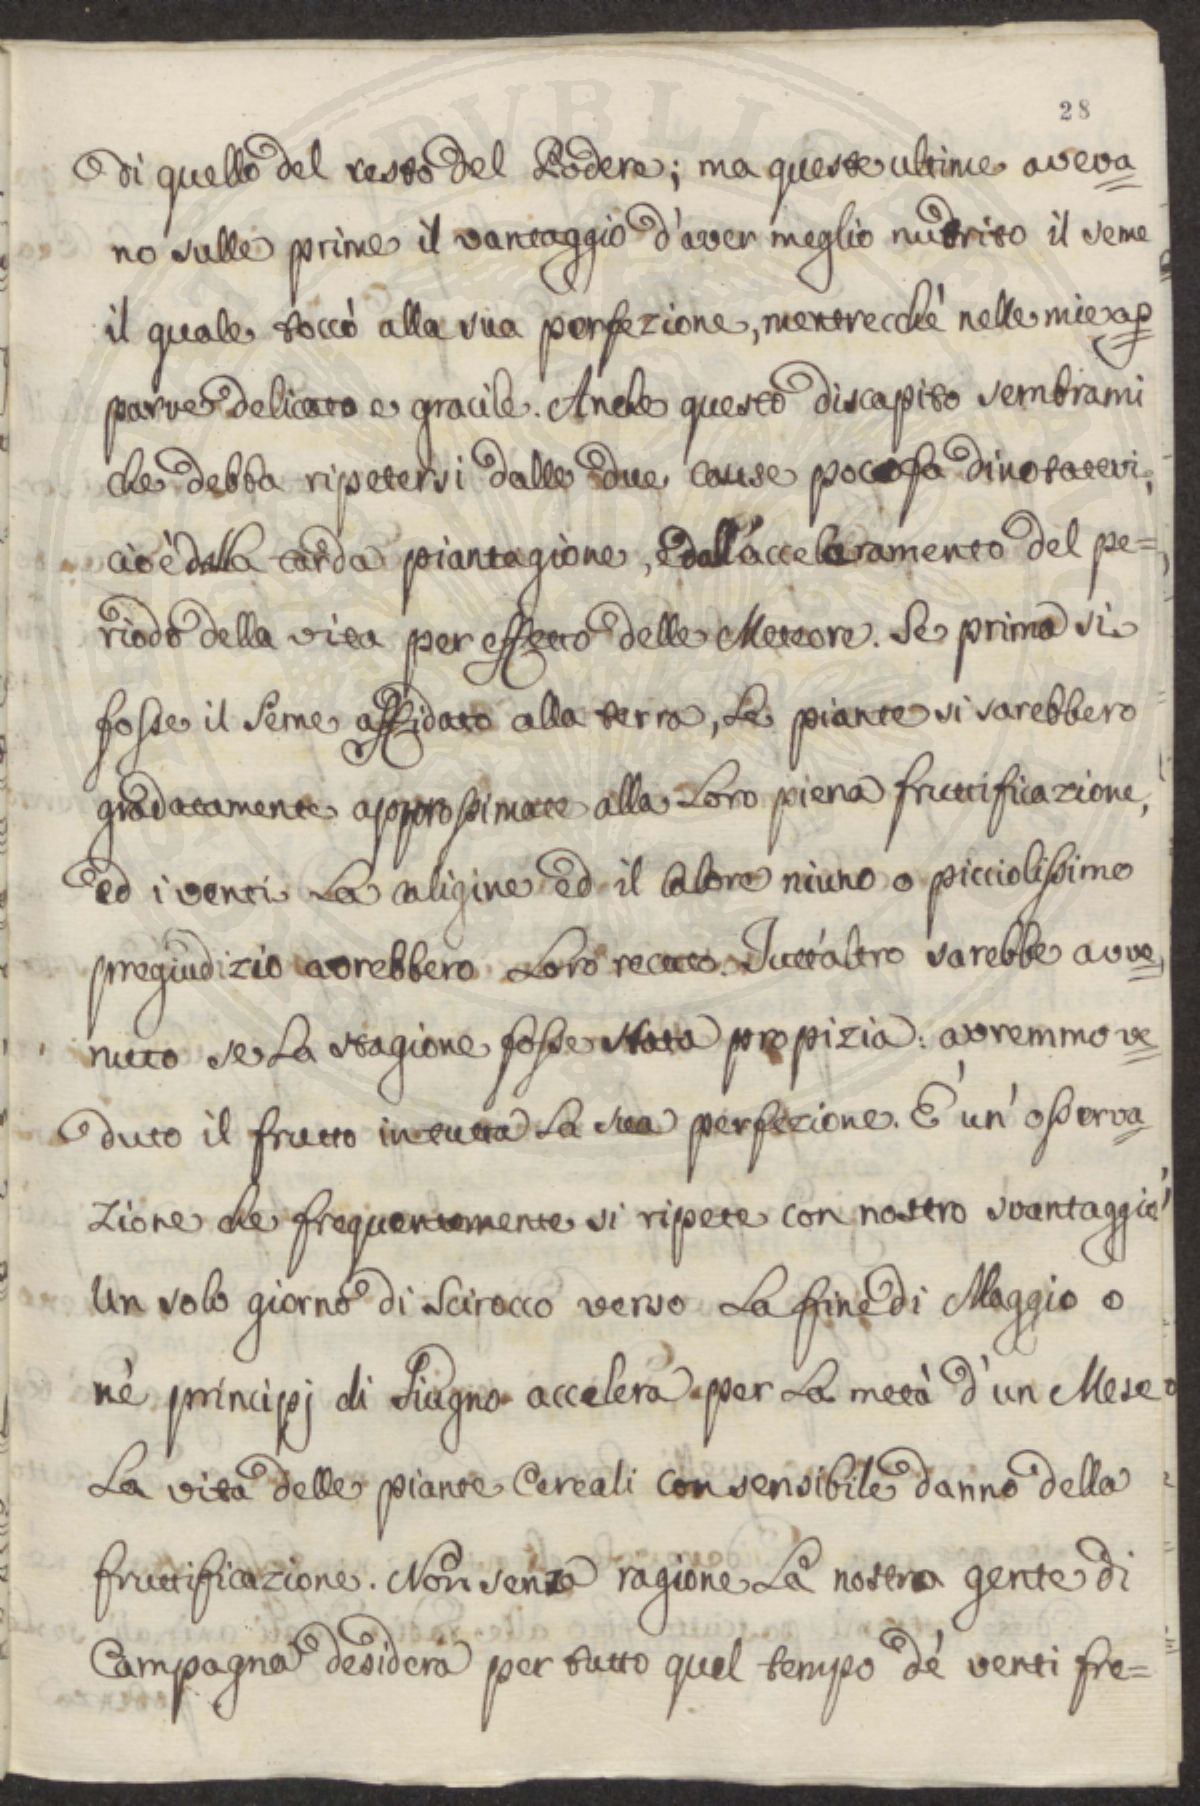 28
di quello del resto del Podere; ma queste ultime aveva=
no sulle prime il vantaggio d'aver meglio nudrito il seme
il quale toccò alla sua perfezione, mentrecchè nelle mie ap=
parve delicato e gracile. Anche questo discapito sembrami
che debba ripetersi dalle due cause pocofa dinotatevi,
cioè dalla tarda piantagione, e dall'acceleramento del pe=
riodo della vita per effetto delle Meteore. Se prima si
fosse il Seme affidato alla terra, le piante si sarebbero
gradatamente approssimate alla Loro piena fruttificazione,
ed i venti La caligine ed il calore niuno o picciolissimo
pregiudizio avrebbero Loro recato. Tutt'altro sarebbe avve=
nuto se La stagione fosse stata propizia: avremmo ve=
duto il frutto in tutta La sua perfezione. È un' osserva=
zione che frequentemente si ripete con nostro svantaggio!
Un solo giorno di Scirocco verso La fine di Maggio o
nè principj di Giugno accelera per La metà d'un Mese
La vita delle piante Cereali con sensibile danno della
fruttificazione. Non senza ragione La nostra gente di
Campagna desidera per tutto quel tempo dè venti fre=